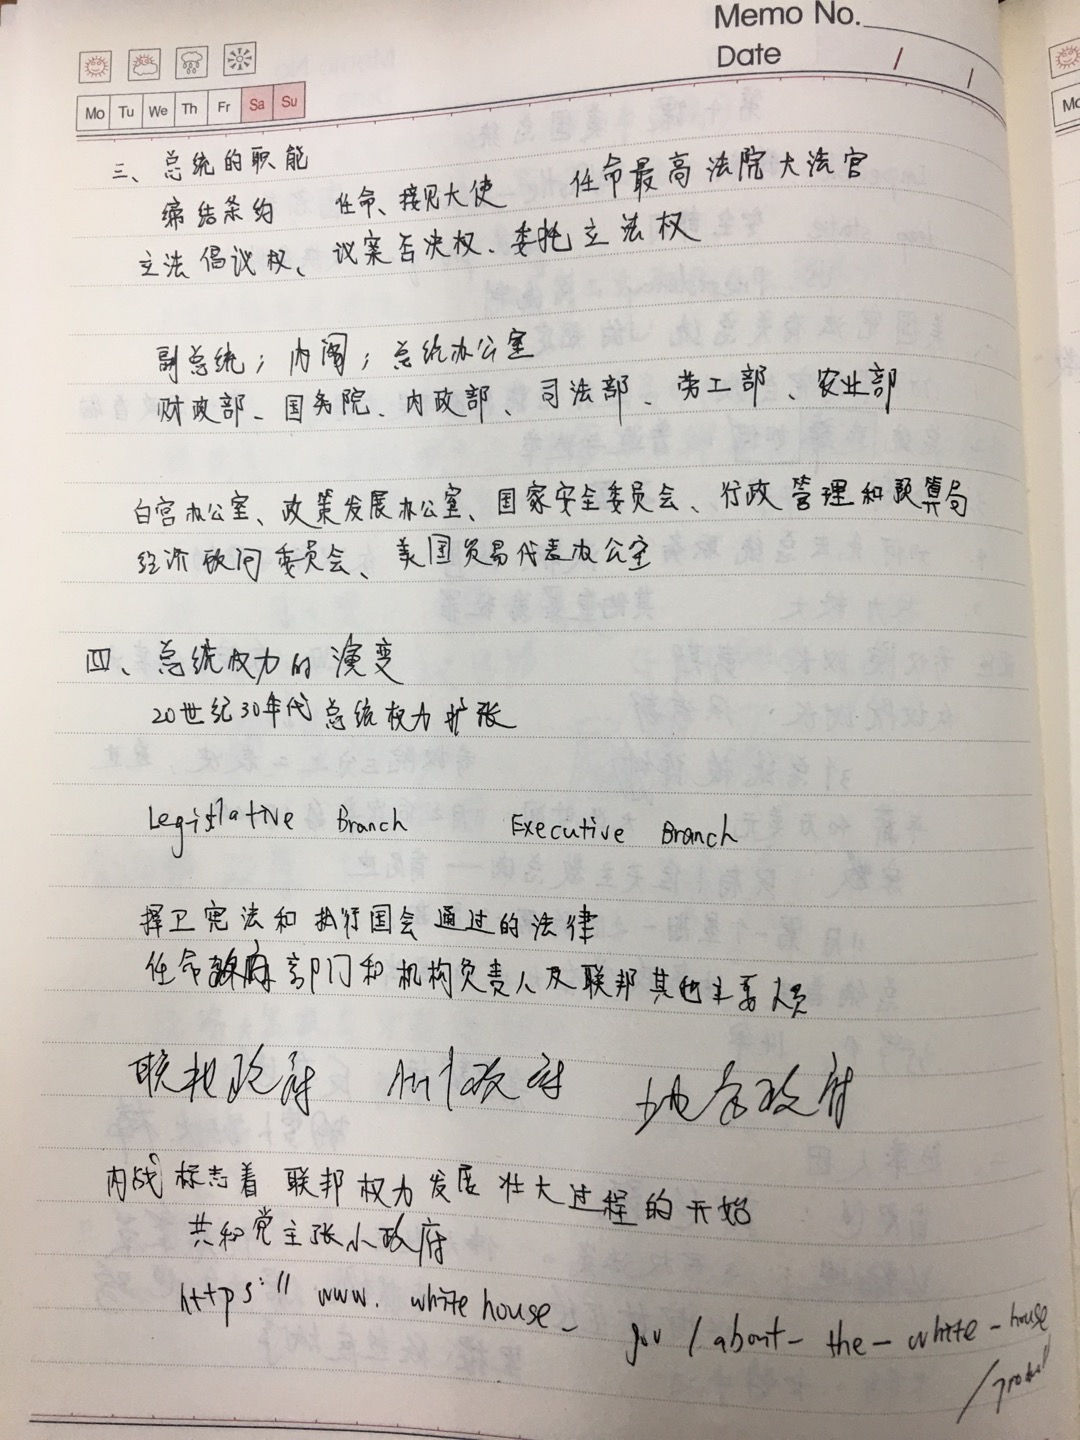 Memo No.
Date / /
Mo Tu We Th Fr Sa Su
三、总统的职能
缔结条约 任命、接见大使 任命最高法院大法官
立法倡议权、议案否决权、委托立法权
副总统；内阁；总统办公室
财政部、国务院、内政部、司法部、劳工部、农业部
白宫办公室、政策发展办公室、国家安全委员会、行政管理和预算局
经济顾问委员会、美国贸易代表办公室
四、总统权力的演变
20世纪30年代总统权力扩张
Legislative Branch Executive Branch
捍卫宪法和执行国会通过的法律
任命政府部门和机构负责人及联邦其他主要人员
联邦政府 州政府 地方政府
内战标志着联邦权力发展壮大过程的开始
共和党主张小政府
https:// www. white house_ gov / about- the- white - house